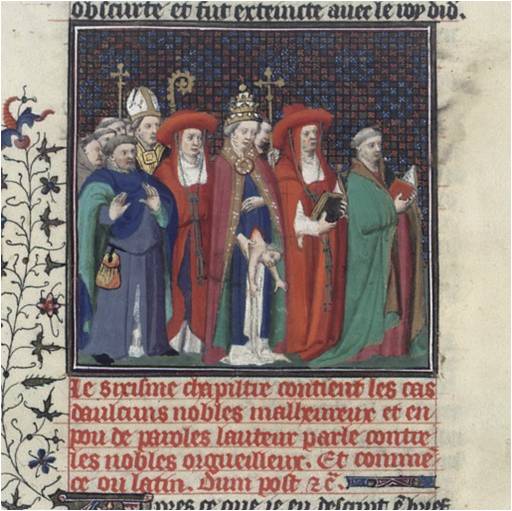 obscurte et fut exteincte avec le roy did.
Le sixisme chapiltre contient les cas
daulcuns nobles malheureux et en
pou de paroles lauteur parle contre
les nobles orgueilleux. Et comme
ce ou latin. Dum post ⁊c̃.
Apres ce que ie en descript